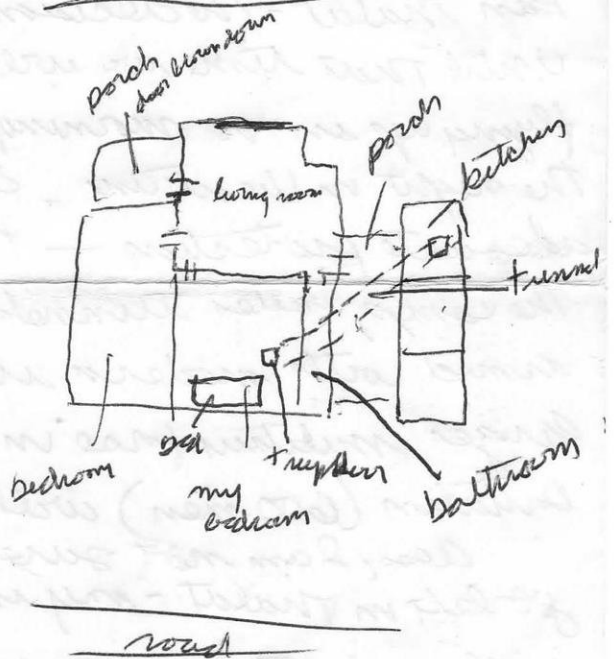 porch
door blown down
living room
porch
kitchen
tunnel
bedroom
bed
my
bedroom
bathroom
road